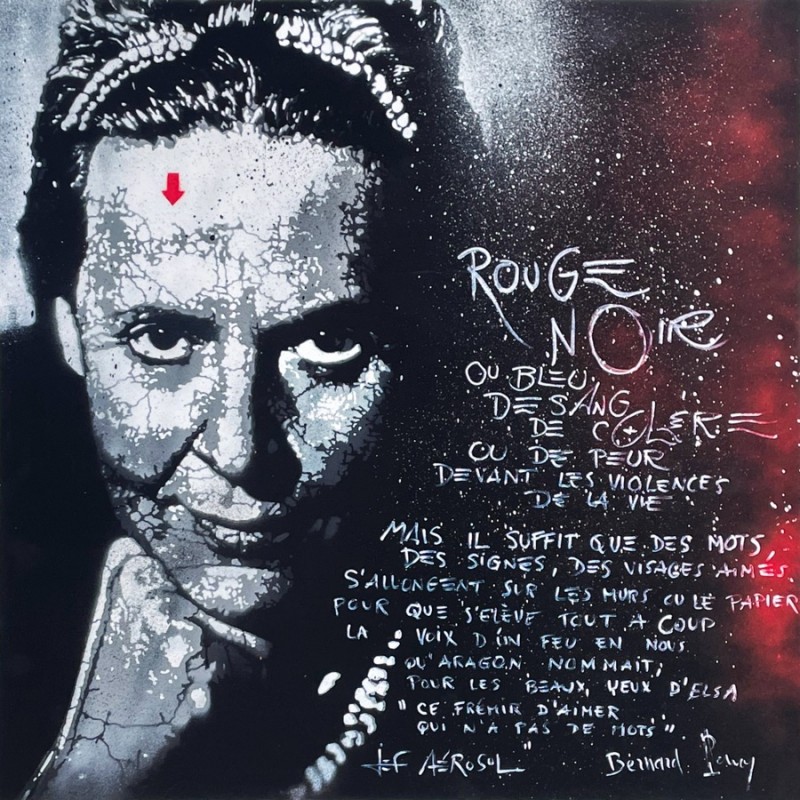 ROUGE
NOIRE
OU BLEU,
DE SANG
DE COLÈRE
OU DE PEUR
DEVANT LES VIOLENCES
DE LA VIE
MAIS IL SUFFIT QUE DES MOTS,
DES SIGNES, DES VISAGES AIMÉS
S'ALLONGENT SUR LES MURS OU LE PAPIER
POUR QUE S'ÉLÈVE TOUT A COUP
LA VOIX D'UN FEU EN NOUS
QU'ARAGON NOMMAIT,
POUR LES BEAUX YEUX D'ELSA
"CE FRÉMIR D'AIMER
QUI N'A PAS DE MOTS"
JEF AÉROSOL Bernard